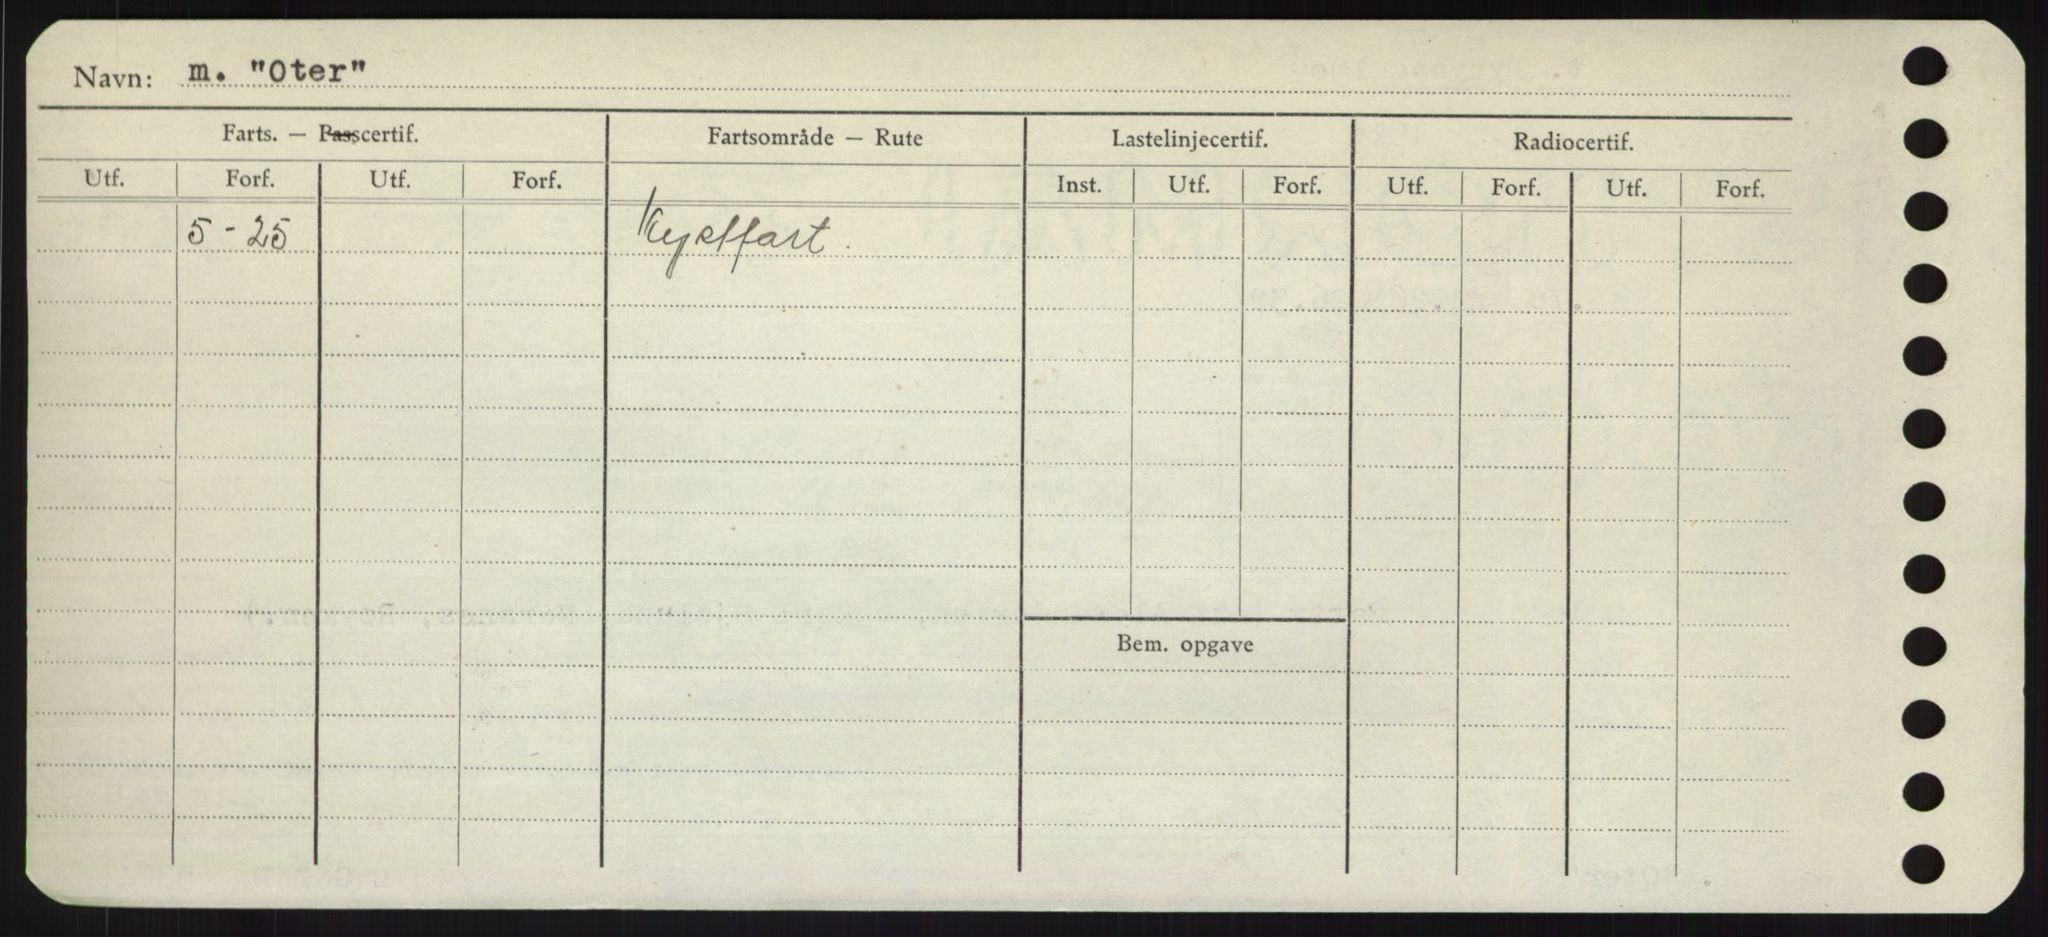 Navn: m. "Oter"
Farts. — Passcertif. Fartsområde — Rute Lastelinjecertif. Radiocertif.
Utf. Forf. Utf. Forf. Inst. Utf. Forf. Utf. Forf. Utf. Forf.
5-25 Kystfart.
Bem. opgave